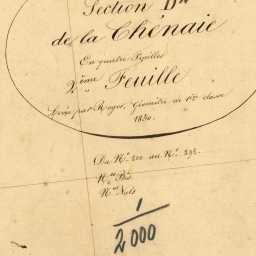 Section D
de la Chênaie
En quatre Feuilles
2.ème Feuille
Levée par Roger, Géomètre de 1re classe
1830.
Du N°. 200 au N°. 292.
N.os Bis
N.os Nuls
1
2000